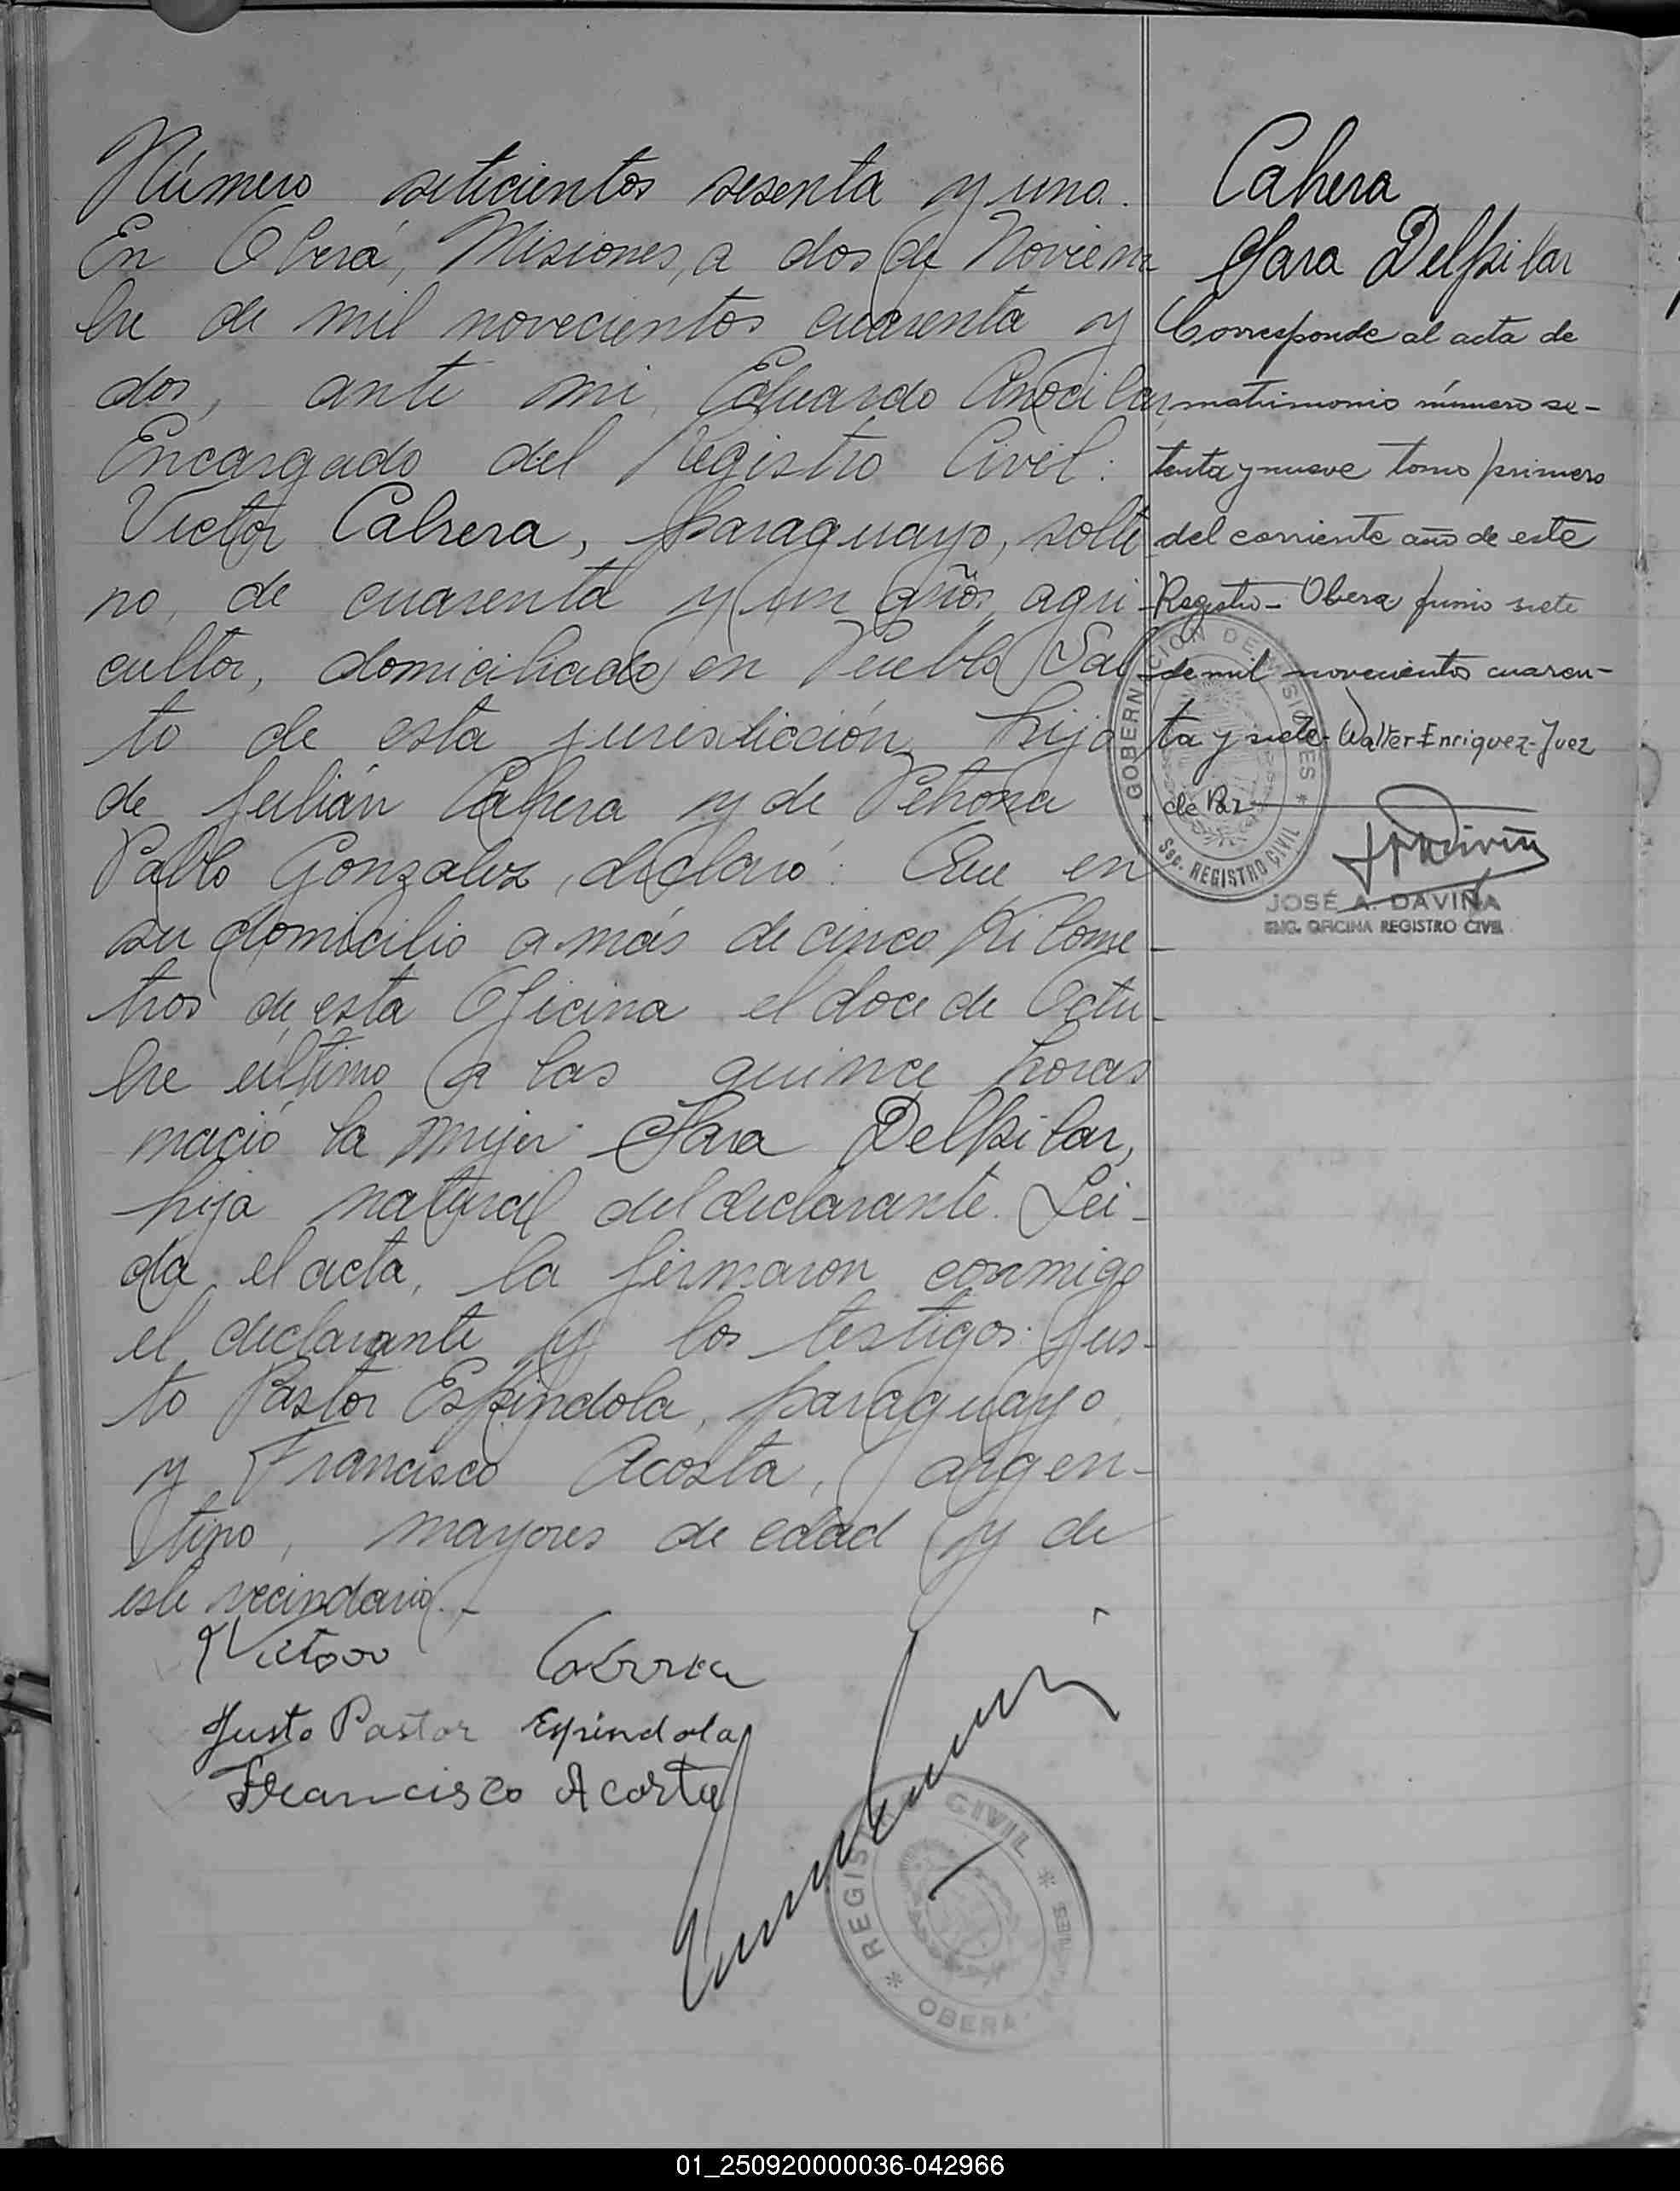 Número seticientos sesenta y uno.
En Oberá, Misiones, a dos de Noviem
bre de mil novecientos cuarenta y
dos, ante mi, Eduardo
Encargado del Registro Civil:
Victor Cabrera, paraguayo, solte
ro, de cuarenta y un años, agri-
cultor, domiciliado en Pueblo Sal
to de esta jurisdicción, hijo
de Julián Cabrera y de Petrona
Pablo Gonzalez, declaró: Que en
su domicilio a más de cinco kilome-
tros de esta Oficina el doce de Octu-
bre último a las quince horas
nació la mujer Sara Delpilar,
hija natural del declarante. Lei-
da el acta, la firmaron conmigo
el declarante y los testigos: Jus-
to Pastor Espindola, paraguayo,
y Francisco Acosta, argen-
tino, mayores de edad y de
este vecindario.-
Victor Cabrera
Justo Pastor Espindola
Francisco Acosta
REGIS CIVIL
OBERA
Cabrera
Sara Delpilar
Corresponde al acta de
matrimonio número se-
tenta y nueve tomo primero
del corriente año de este
Registro- Obera junio siete
de mil novecientos cuaren-
ta y siete- Walter Enriquez- Juez
de Paz
GOBERNACION DE MISIONES
Sec. REGISTRO CIVIL
JOSÉ A. DAVIÑA
ENC. OFICINA REGISTRO CIVIL
01_250920000036-042966